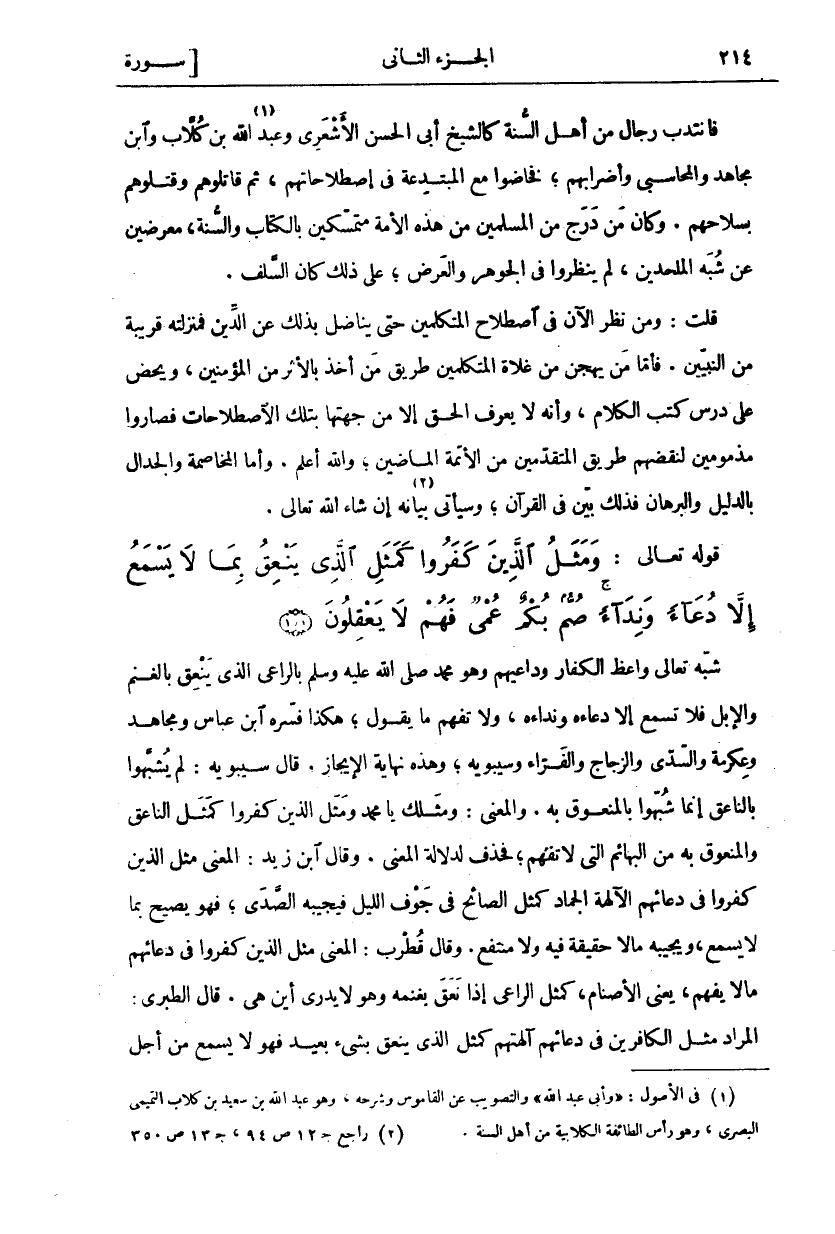 ٢١٤ الجـزء الثـانى [ ســورة
فانتدب رجال من أهـل السُّنة كالشيخ أبى الحسن الأَشْعَرى وعبد الله (١) بن كُلَّاب وآبن
مجاهد والمحاسبى وأضرابهم ؛ فخاضوا مع المبتـدعة فى إصطلاحاتهم ، ثم قاتلوهم وقتـلوهم
بسلاحهم . وكان مَن دَرَج من المسلمين من هذه الأمة متمسّكين بالكتاب والسُّنة، معرضين
عن شُبَه الملحدين ، لم ينظروا فى الجوهر والعَرض ؛ على ذلك كان السَّلف .
قلت : ومن نظر الآن فى آصطلاح المتكلمين حتى يناضل بذلك عن الدِّين فمنزلته قريبة
من النبيّين . فأمّا مَن يهجن من غلاة المتكلمين طريق مَن أخذ بالأثر من المؤمنين ، ويحض
على درس كتب الكلام ، وأنه لا يعرف الحـق إلا من جهتها بتلك الآصطلاحات فصاروا
مذمومين لنقضهم طريق المتقدّمين من الأئمة المـاضين ؛ والله أعلم . وأما المخاصمة والجدال
بالدليل والبرهان فذلك بيّن فى القرآن ؛ وسيأتى بيانه (٢) إن شاء الله تعالى .
قوله تعـالى : وَمَثَـلُ ٱلَّذِينَ كَفَرُوا كَمَثَلِ ٱلَّذِى يَنْعِقُ بِمَـا لَا يَسْمَعُ
إِلَّا دُعَآءً وَنِدَآءً ۚ صُمٌّ بُكْمٌ عُمْىٌ فَهُمْ لَا يَعْقِلُونَ ۝١٧١
شبّه تعالى واعظ الكفار وداعيهم وهو محمد صلى الله عليه وسلم بالراعى الذى يَنْعِق بالغـنم
والإبل فلا تسمع إلا دعاءه ونداءه ، ولا تفهم ما يقـول ؛ هكذا فسّره آبن عباس ومجاهـد
وعِكرمة والسّدّى والزجاج والفَـرّاء وسيبويه ؛ وهذه نهاية الإيجاز . قال سـيبويه : لم يُشبَّهوا
بالناعق إنما شُبّهوا بالمنعـوق به . والمعنى : ومثَـلك يا محمد ومَثَل الذين كفروا كَمَثَـل الناعق
والمنعوق به من البهائم التى لاتفهم؛ فحذف لدلالة المعنى . وقال آبن زيد : المعنى مثل الذين
كفروا فى دعائهم الآلهة الجماد كمثل الصائح فى جَوْف الليل فيجيبه الصَّدَى ؛ فهو يصيح بما
لايسمع، ويجيبه مالا حقيقة فيه ولا منتفع. وقال قُطْرب : المعنى مثل الذين كفروا فى دعائهم
مالا يفهم، يعنى الأصنام، كمثل الراعى إذا نَعَقَ بغنمه وهو لايدرى أين هى . قال الطبرى :
المراد مثـل الكافرين فى دعائهم آلهتهم كمثل الذى ينعق بشىء بعيـد فهو لا يسمع من أجل
(١) فى الأصول : «وأبى عبد الله» والتصويب عن القاموس وشرحه ، وهو عبد الله بن سعيد بن كلاب التميمى
البصرى ، وهو رأس الطائفة الكلابية من أهل السنة . (٢) راجع جـ ١٢ ص ٩٤ ، جـ ١٣ ص ٣٥٠